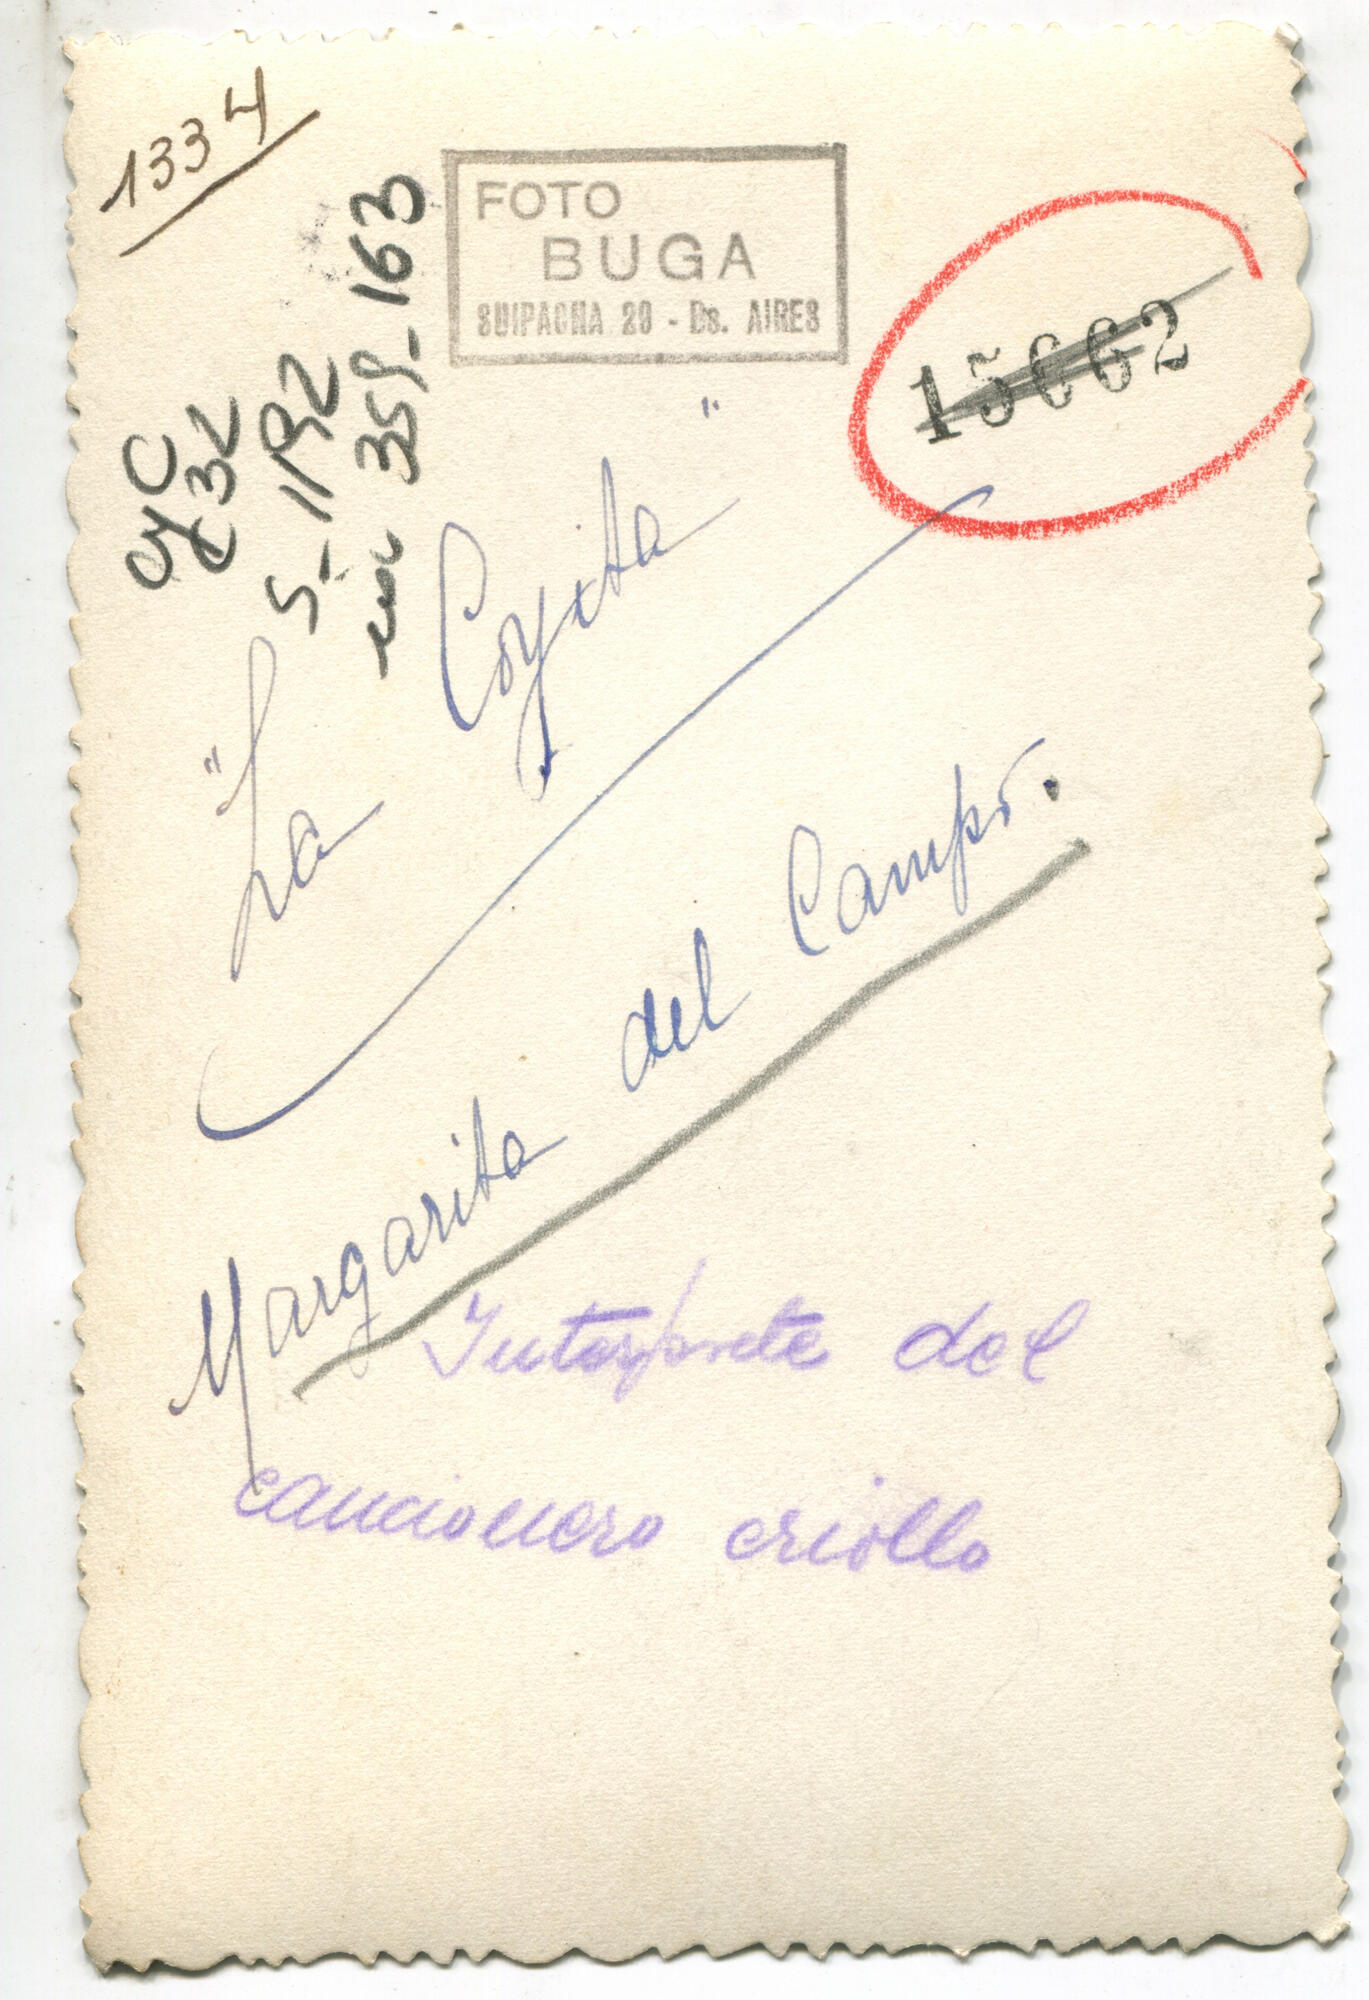 1334
FOTO
BUGA
SUIPACHA 29 - Bs. AIRES
15662
C y C
C 32
S-1192
359-163
"La Coyita"
Margarita del Campo.
Interprete del
cancionero criollo